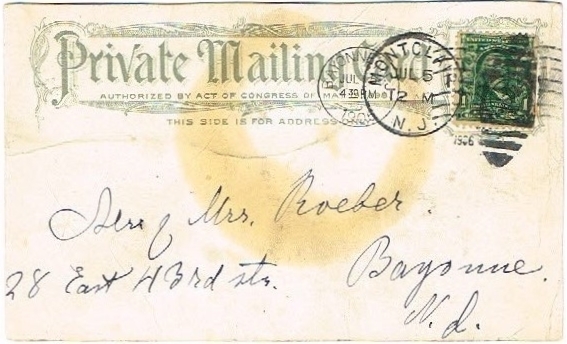 Private Mailing Card
AUTHORIZED BY ACT OF CONGRESS OF MAY
THIS SIDE IS FOR ADDRESS
BAYONNE
JUL
4-30 PM
190
MONTCLAIR
JUL 5
12 M
N.J.
1906
1
Mr & Mrs. Roeber.
28 East 43rd str. Bayonne.
N.J.